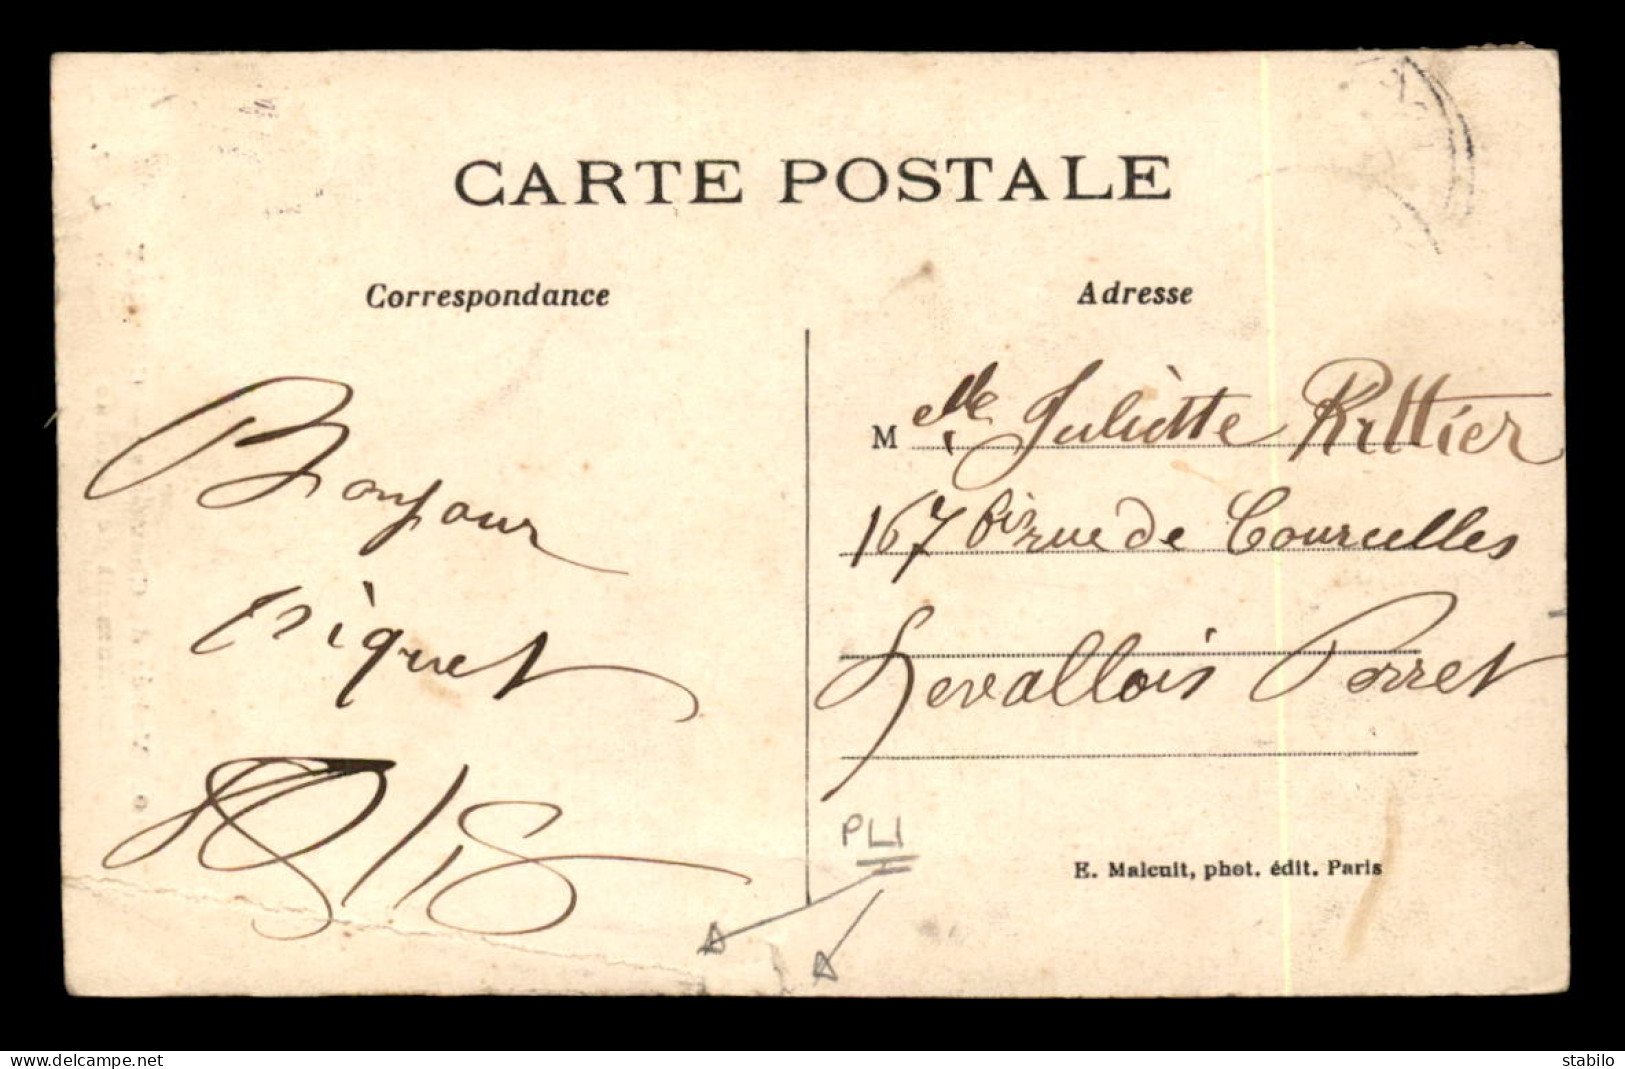 CARTE POSTALE
Correspondance
Adresse
Bonjour
M elle Juliette Rittier
167 bis rue de Courcelles
Levallois Perret
PLI
E. Malcuit, phot. édit. Paris
https://www.delcampe.net
stabilo